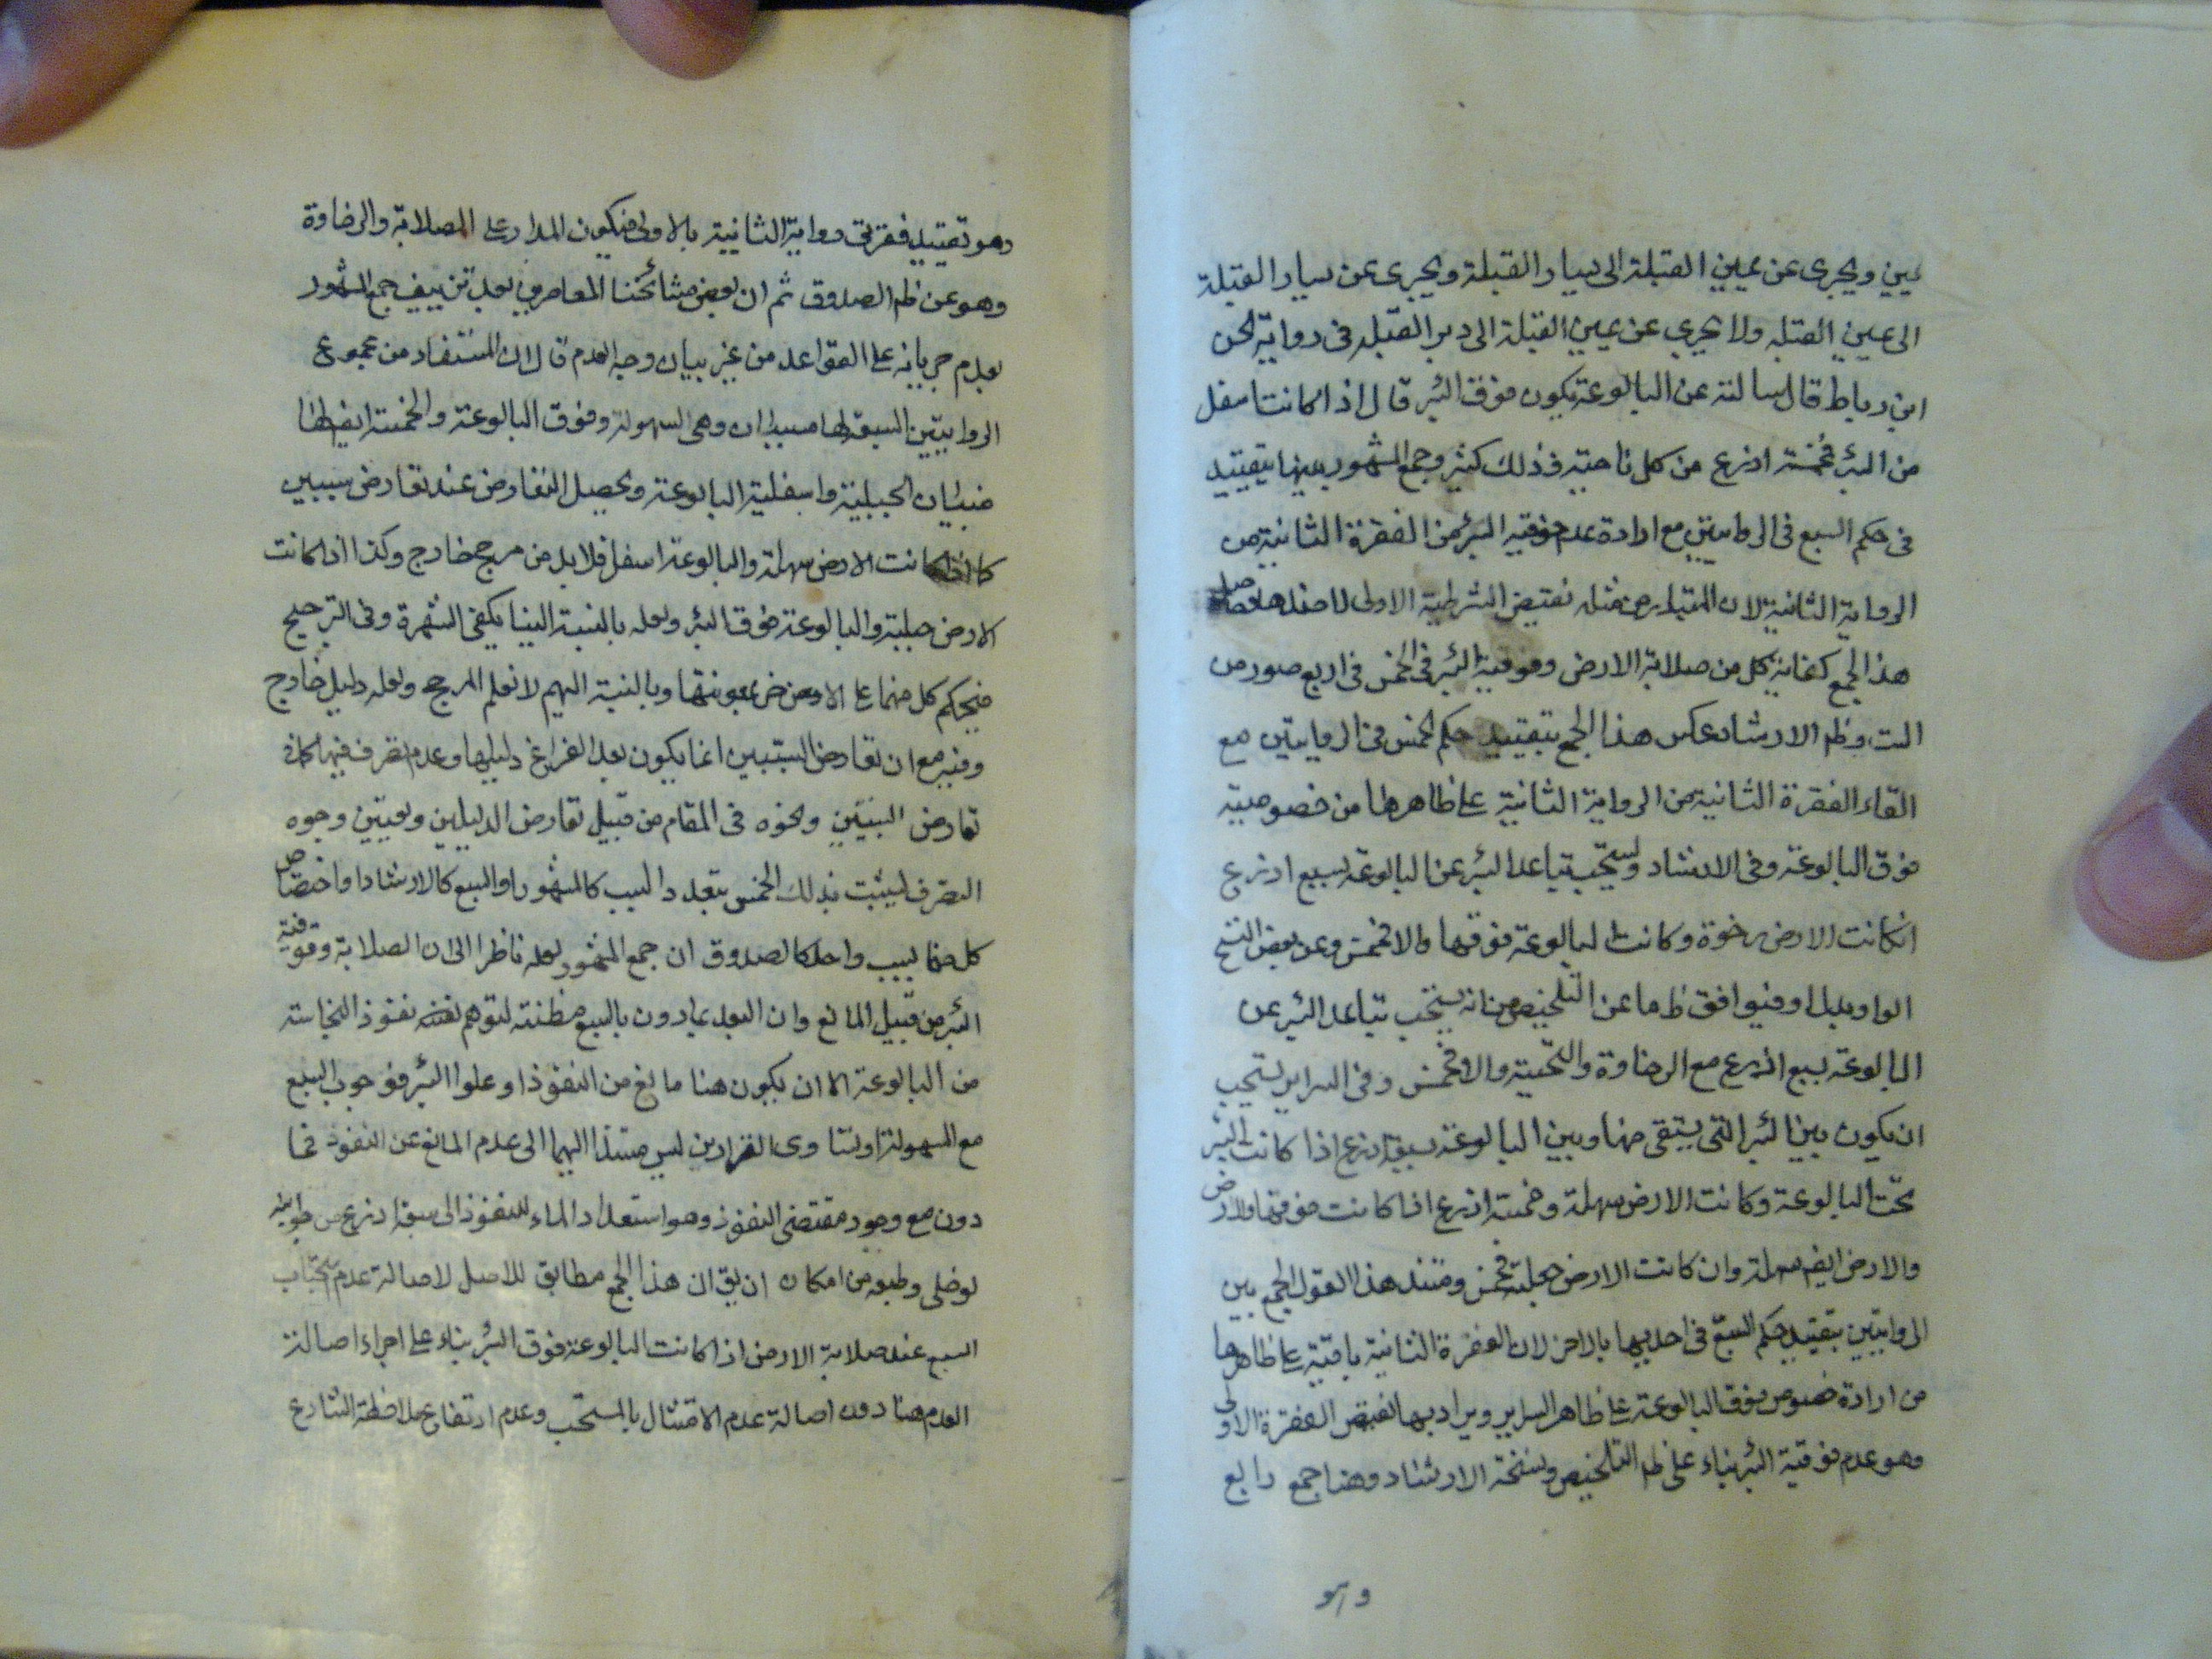 يمين ويجرى عن يمين القبلة الى يسار القبلة ويجرى عن يسار القبلة
الى يمين القبلة ولا يجرى عن يمين القبلة الى دبر القبله فى رواية الحسن
ابن رباط قال سالته عن البالوعة يكون فوق البئر قال اذا كانت اسفل
من البئر فخمسة اذرع من كل ناحية وذلك كثير وجمع المشهور بينهما بتقييد
فى حكم السبع فى الروايتين مع ارادة عدم فوقية البئر من الفقرة الثانية من
الرواية الثانية لان المتبادر من مثله نقيض الشرطية الاولى لا ضدها
هذا الجمع كفاية كل من صلابة الارض وفوقية البئر فى الخمس فى اربع صور من
الست وظ الارشاد عكس هذا الجمع بتقييد حكم الخمس فى الروايتين مع
القاء الفقرة الثانية من الرواية الثانية على ظاهرها من خصوصية
فوق البالوعة وفى الارشاد ويستحب تباعد البئر عن البالوعة بسبع اذرع
انكانت الارض رخوة وكانت البالوعة فوقها والا فخمس وعن بعض النسخ
الواو بدل او فيوافق ظ ما عن التلخيص من انه يستحب تباعد البئر عن
البالوعة بسبع اذرع مع الرخاوة والتحتية والا فخمس وفى السراير يستحب
ان يكون بين البئر التى يستقى منها وبين البالوعة سبعة اذرع اذا كانت البئر
تحت البالوعة وكانت الارض سهلة وخمسة اذرع اذا كانت فوقها والارض
والارض ايضا سهلة وان كانت الارض جبلة فخمس ومستند هذا القول الجمع بين
الروايتين بتقييد حكم السبع فى احديهما بالاخر لان الفقرة الثانية باقية على ظاهرها
من ارادة خصوص فوق البالوعة على ظاهر السراير ويراد بها نقيض الفقرة الاولى
وهو عدم فوقية البئر بناء على ظ التلخيص ونسخة الارشاد وهنا جمع رابع
وهو
وهو تقييد فقرتى رواية الثانية بالاولى فيكون المدار على الصلابة والرخاوة
وهو عن ظ الصدوق ثم ان بعض مشائخنا المعاصرين بعد تزييف جمع المشهور
بعدم جريانه على القواعد من غير بيان وجه العدم قال ان المستفاد من مجموع
الروايتين السبع لها سببان وهى السهولة وفوق البالوعة والخمسة ايض لها
سببان الجبلية واسفلية البالوعة ويحصل التعارض عند تعارض سببين
كما اذا كانت الارض سهلة والبالوعة اسفل فلا بد من مرجح خارج وكذا اذا كانت
الارض جبلية والبالوعة فوق البئر ولعله بالنسبة الينا يكفى الشهرة وفى الترجيح
فيحكم كل منهما على الاخر بمعونتها وبالنسبة اليهم لا نعلم المرجح ولعله دليل خارج
وفيه مع ان تعارض السببين انما يكون بعد الفراغ دليلهما وعدم تصرف فيهما كما فى
تعارض البينتين ونحوه فى المقام من قبيل تعارض الدليلين وتعيين وجوه
التصرف ليثبت بذلك الخمس بتعدد السبب كالمشهور او السبع كالارشاد او اختصاص
كل منهما بسبب واحد كالصدوق ان جمع المشهور لعله ناظر الى ان الصلابة وفوقية
البئر من قبيل المانع وان البعد بما دون بالسبع مظنة لتوهم نفوذ النجاسة
من البالوعة الا ان يكون هنا مانع من النفوذ او علو البئر فوجوب السبع
مع السهولة او تساوى القرارين ليس مستندا اليهما الى عدم المانع عن النفوذ فما
دون مع وجود مقتضى النفوذ وهو استعداد الماء للنفوذ الى سبعة اذرع من جوانبه
لو خلى وطبعه من امكان ان يق ان هذا الجمع مطابق للاصل لاصالة عدم استحباب
السبع عند صلابة الارض اذا كانت البالوعة فوق البئر بناء على اجراء اصالة
العدم هنا دون اصالة عدم الامتثال بالمستحب وعدم ارتفاع ملاحظة الشارع